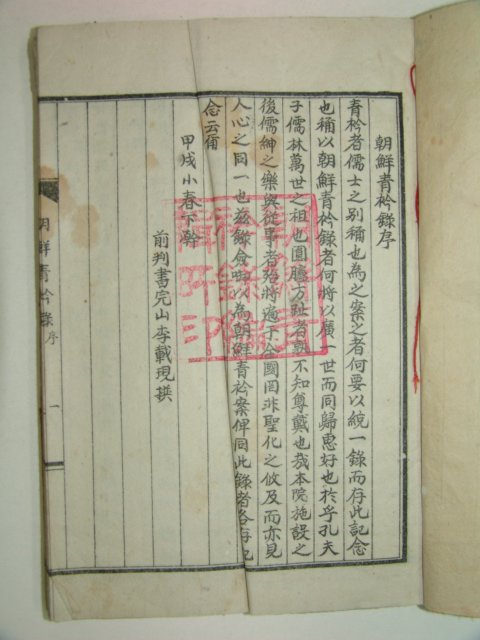 朝鮮青衿錄序
青衿者儒士之別稱也為之案之者何要以統一錄而存此記念
也稱以朝鮮青衿錄者何將以廣一世而同歸惠好也於乎孔夫
子儒林萬世之祖也圓顱方趾者孰不知尊戴也哉本院施設之
後儒紳之樂與從事者殆將遍于全國罔非聖化之攸及而亦見
人心之同一也玆錄僉以為朝鮮青衿案俾同此錄者各存記
念云爾
甲戌小春下澣
前判書完山李載現撰
朝鮮青衿錄 序 一